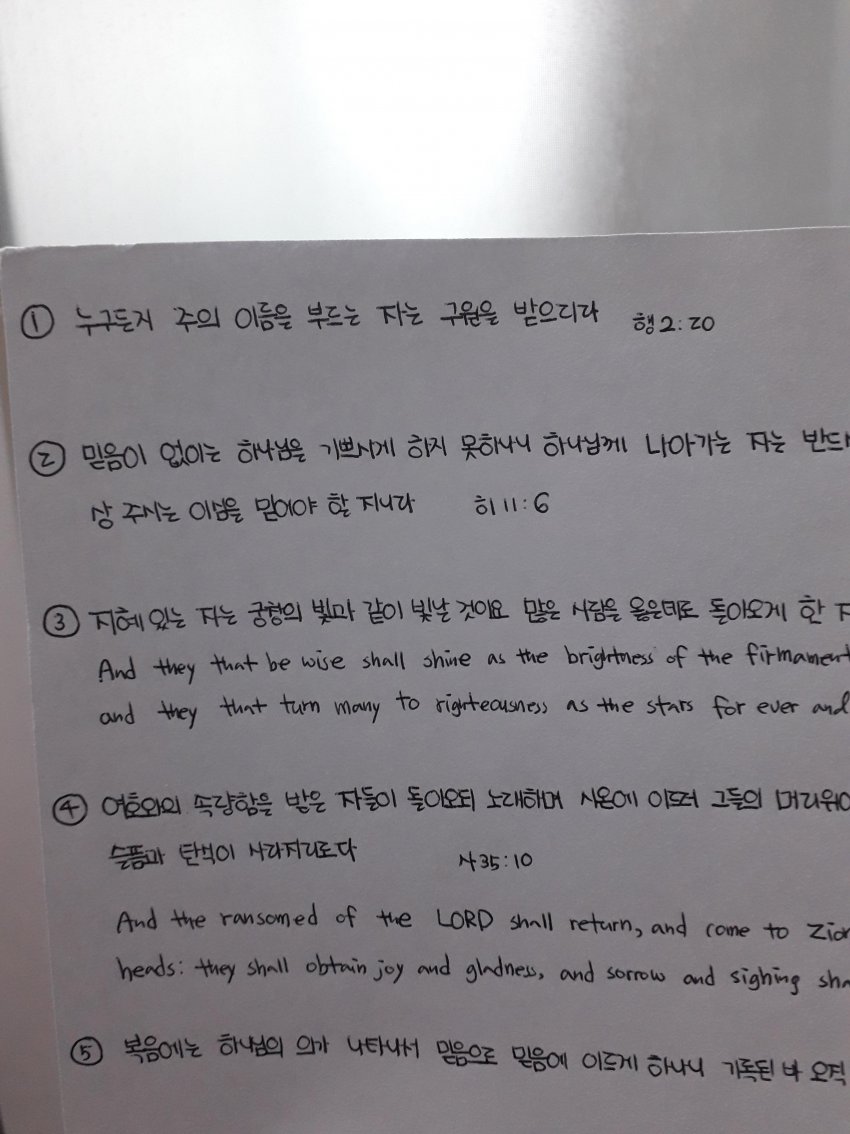 ① 누구든지 주의 이름을 부르는 자는 구원을 받으리라 행2:20
② 믿음이 없이는 하나님을 기쁘시게 하지 못하나니 하나님께 나아가는 자는 반드
상 주시는 이심을 믿어야 할 지니라 히 11:6
③ 지혜 있는 자는 궁창의 빛과 같이 빛날 것이요 많은 사람을 옳은데로 돌아오게 한
And they that be wise shall shine as the brightness of the firmament
and they that turn many to righteousness as the stars for ever and
④ 여호와의 속량함을 받은 자들이 돌아오되 노래하며 시온에 이르러 그들의 머리위에
슬픔과 탄식이 사라지리로다 사35:10
And the ransomed of the LORD shall return, and come to Zion
heads: they shall obtain joy and gladness, and sorrow and sighing sha
⑤ 복음에는 하나님의 의가 나타나서 믿음으로 믿음에 이르게 하나니 기록된 바 오직